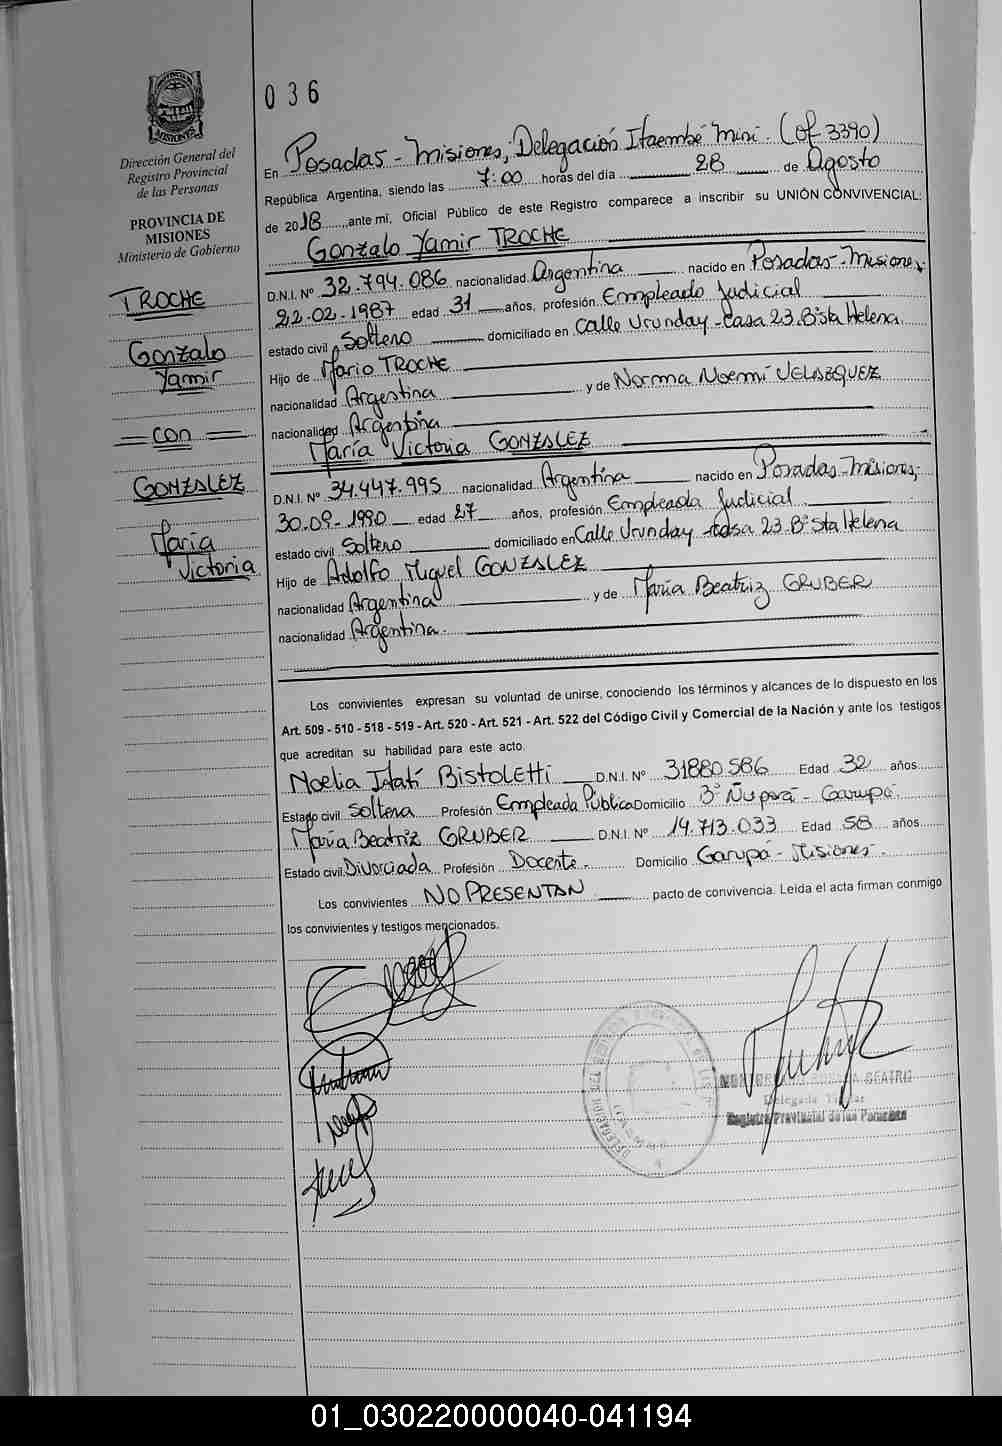 036
PROVINCIA
MISIONES
Dirección General del
Registro Provincial
de las Personas
PROVINCIA DE
MISIONES
Ministerio de Gobierno
TROCHE
Gonzalo
Yamir
= con =
GONZALEZ
María
Victoria
En Posadas - Misiones, Delegación Itaembé Miní. (of 3390)
República Argentina, siendo las 7:00 horas del día 28 de Agosto
de 2018, ante mí, Oficial Público de este Registro comparece a inscribir su UNIÓN CONVIVENCIAL:
Gonzalo Yamir TROCHE
D.N.I. Nº 32.794.086 nacionalidad Argentina nacido en Posadas - Misiones,
22-02-1987 edad 31 años, profesión Empleado Judicial
estado civil Soltero domiciliado en Calle Urunday - Casa 23. Bº Sta Helena
Hijo de Mario TROCHE
nacionalidad Argentina y de Norma Noemí VELAZQUEZ
nacionalidad Argentina
María Victoria GONZALEZ
D.N.I. Nº 34.447.995 nacionalidad Argentina nacido en Posadas - Misiones,
30-09-1990 edad 27 años, profesión Empleada Judicial
estado civil Soltero domiciliado en Calle Urunday - casa 23. Bº Sta Helena
Hijo de Adolfo Miguel GONZALEZ
nacionalidad Argentina y de María Beatriz GRUBER
nacionalidad Argentina.
Los convivientes expresan su voluntad de unirse, conociendo los términos y alcances de lo dispuesto en los
Art. 509 - 510 - 518 - 519 - Art. 520 - Art. 521 - Art. 522 del Código Civil y Comercial de la Nación y ante los testigos
que acreditan su habilidad para este acto.
Noelia Itatí Bistoletti D.N.I. Nº 31880.586 Edad 32 años
Estado civil Soltera Profesión Empleada Pública Domicilio Bº Ñu porá - Garupá.
María Beatriz GRUBER D.N.I. Nº 14.713.033 Edad 58 años
Estado civil Divorciada Profesión Docente. Domicilio Garupá - Misiones.
Los convivientes NO PRESENTAN pacto de convivencia. Leída el acta firman conmigo
los convivientes y testigos mencionados.
BEATRIZ
Delegada Titular
Registro Provincial de las Personas
01_030220000040-041194